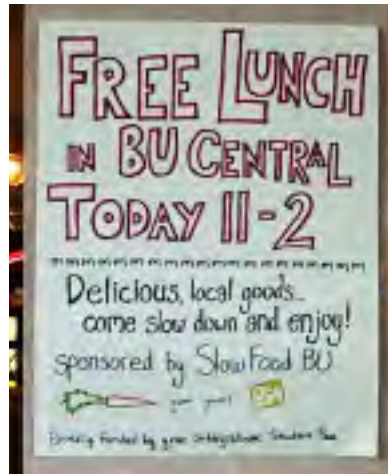 FREE LUNCH
IN BU CENTRAL
TODAY 11-2
Delicious, local goods...
come slow down and enjoy!
sponsored by Slow Food BU
Funded by your Undergraduate Student Fee